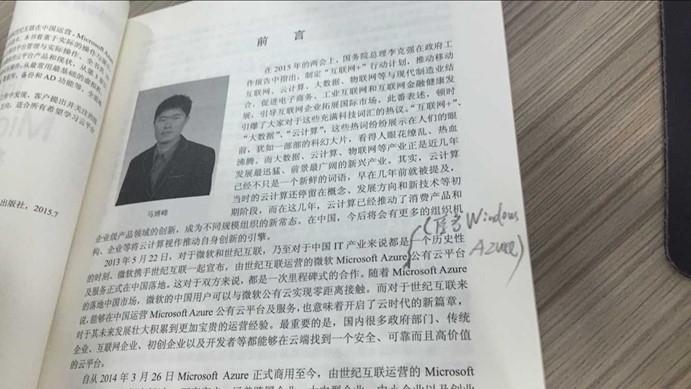 前 言
在 2015 年的两会上，国务院总理李克强在政府工
作报告中指出，制定“互联网+”行动计划，推动移动
互联网、云计算、大数据、物联网等与现代制造业结
合，促进电子商务、工业互联网和互联网金融健康发
展，引导互联网企业拓展国际市场。此番表述，顿时
引爆了大家对于这些充满科技词汇的热议。“互联网+”、
“大数据”、“云计算”，这些热词纷纷展示在人们的眼
前，犹如一部部的科幻大片，看得人眼花缭乱、热血
沸腾。而大数据、云计算、物联网等产业正是近几年
发展最迅猛、前景最广阔的新兴产业。其实，云计算
已经不只是一个新鲜的词语，早在几年前就被提及，
当时的云计算还停留在概念、发展方向和新技术等初
期阶段，而在这几年，云计算已经推动了消费产品和
马博峰
企业级产品领域的创新，成为不同规模组织的新常态。在中国，今后将会有更多的组织机
构、企业等将云计算操作推动自身创新的引擎。
2013 年 5 月 22 日，对于微软和世纪互联，乃至对于中国 IT 产业来说都是一个历史性
的时刻。微软携手世纪互联一起宣布，由世纪互联运营的微软 Microsoft Azure 公有云平台
及服务正式在中国落地。这对于双方来说，都是一次里程碑式的合作。随着 Microsoft Azure
的落地中国市场，微软的中国用户可以与微软公有云实现零距离接触。而对于世纪互联来
说，能够在中国运营 Microsoft Azure 公有云平台及服务，也意味着开启了云时代的新篇章，
对于其未来发展壮大积累到更加宝贵的运营经验。最重要的是，国内很多政府部门、传统
企业、互联网企业、初创企业以及开发者等都能够在云端找到一个安全、可靠而且高价值
的云平台。
自从 2014 年 3 月 26 日 Microsoft Azure 正式商用至今，由世纪互联运营的 Microsoft
Windows
Azure)
出版社，2015.7